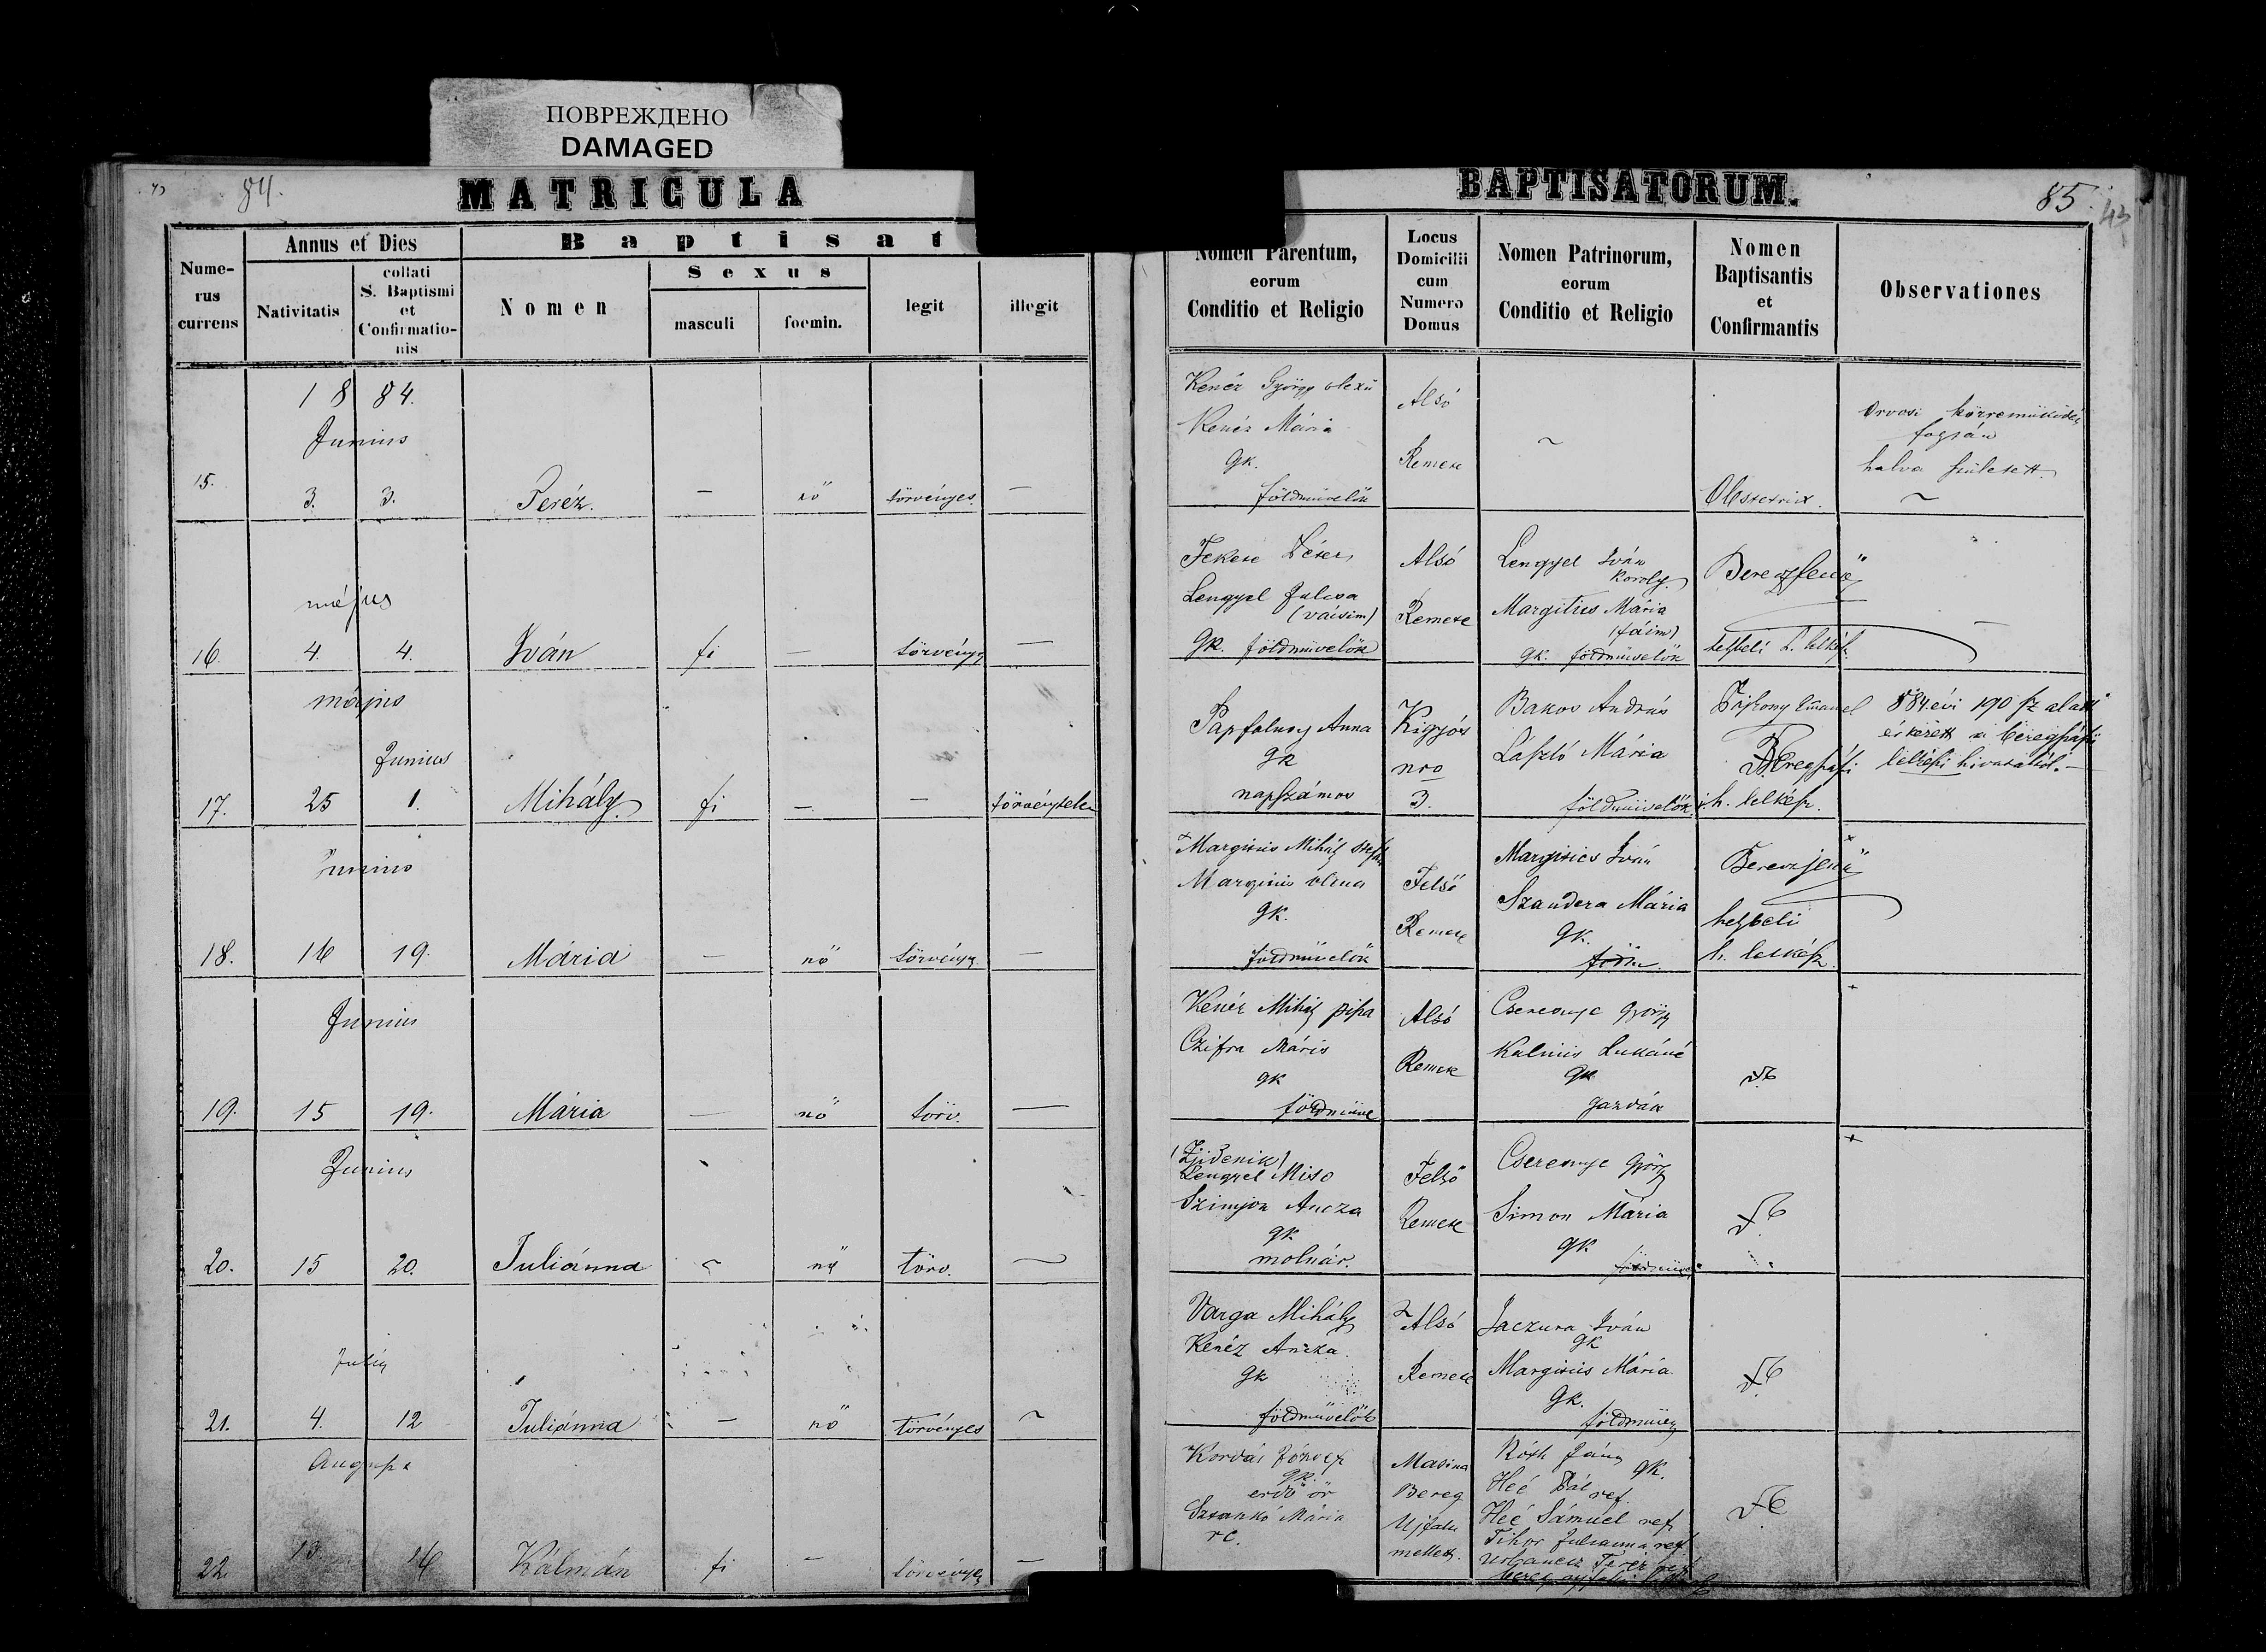 ПОВРЕЖДЕНО
DAMAGED
84.
MATRICULA
BAPTISATORUM.
85.
43
Nume-
rus
currens
Annus et Dies
Nativitatis
collati
S. Baptismi
et
Confirmatio-
nis
Baptisat
Nomen
Sexus
masculi
foemin.
legit
illegit
Nomen Parentum,
eorum
Conditio et Religio
Locus
Domicilii
cum
Numero
Domus
Nomen Patrinorum,
eorum
Conditio et Religio
Nomen
Baptisantis
et
Confirmantis
Observationes
1884.
Junius
15. 3. 3. Teréz. – nő törvényes. –
Kenéz György olexü
Kenéz Mária
gk.
földmüvelők
Alsó
Remete
~
Obstetrix.
Orvosi közremüködés
folytán
halva született
~
május
16. 4. 4. Iván fi – törvényes –
Fekete Péter
Lengyel Julcsa
gk. földmüvelők
Alsó
Remete
Lengyel Iván
Karoly
Margitics Mária
gk. földmüvelők
helybeli h. lelkész
május
Junius
17. 25 1. Mihály fi – – törvénytelen
Papfalvay Anna
gk
napszámos
Kigyós
nro
3.
Bakos András
László Mária
földmüvelők
Beregszászi
h. lelkész.
884. évi 190 sz alatt
érkezett a beregszászi
lelkészi hivataltól. –
Junius
18. 16 19. Mária – nő törvényes –
Margitics Mihály
Margitics Olena
gk.
földmüvelők
Felső
Remete
Margitics Iván
Szandera Mária
gk.
földm.
helybeli
h. lelkész.
Junius
19. 15 19. Mária – nő törv. –
Kenéz Mihály pipa
Czifra Máris
gk
földmüve
Alsó
Remete
Cserenye György
Kalinis Lukáné
gk
gazdák
Junius
20. 15 20. Juliánna ~ nő törv. ~
(Zsidenik)
Lengyel Miso
Szimjon Ancza
gk
molnár.
Felső
Remete
Cserenye György
Simon Mária
gk
Julius
21. 4. 12 Juliánna – nő törvényes ~
Varga Mihály
Kenéz Ancza
gk
földmüvelők
Alsó
Remete
Jaczura Iván
gk
Margitics Mária
gk.
Augusztus
22. 13 14 Kálmán fi – törvényes –
Kordás József
gk.
erdő őr
Sztankó Mária
rc.
Masina
Bereg
Ujfalu
mellett.
Róth János gk.
Heé Pál ref.
Heé Sámuel ref.
Tihor Julianna ref.